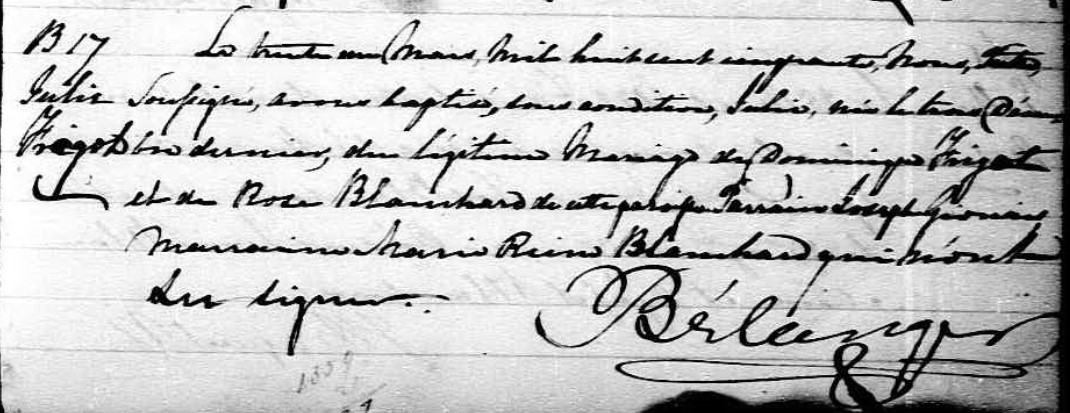 B 17 Le trente un Mars, mil huit cent cinquante, Nous, Ptre,
Julie Soussigné, avons baptisé, sous condition, Julie, née le trois Décem
Frigot bre dernier, du légitime Mariage de Dominique Frigot
et de Rose Blanchard de cette paroisse Parrain Joseph
Marraine Marie Reine Blanchard qui n'ont
su signer.
Bélanger